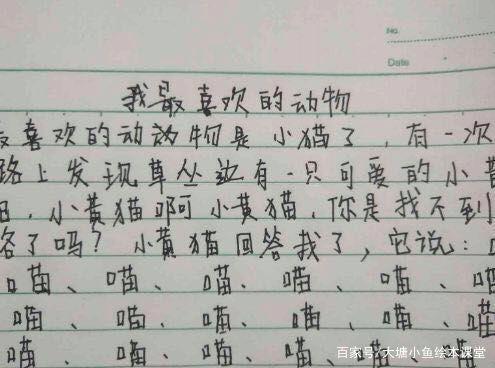 No.
Date
我最喜欢的动物
喜欢的动物是小猫了，有一次
路上发现草丛边有一只可爱的小黄
，小黄猫啊小黄猫，你是找不到
了吗？小黄猫回答我了，它说：
喵、喵、喵、喵、喵、喵、喵
喵、喵、喵、喵、喵、喵、喵
喵、喵、喵、喵、喵、喵
百家号/大塘小鱼绘本课堂